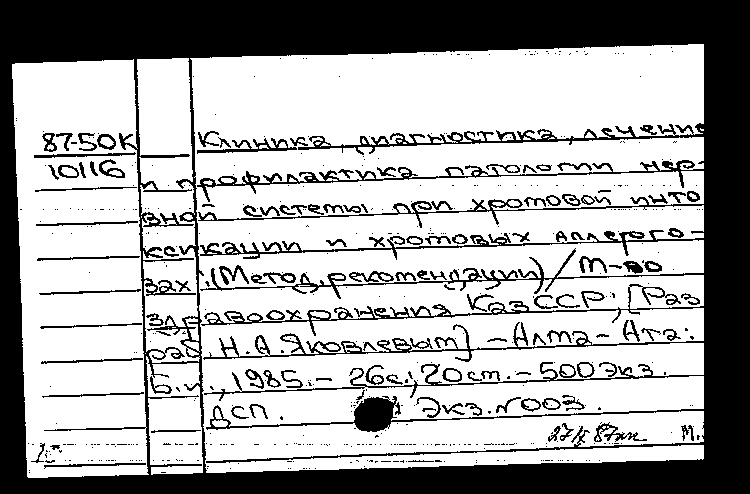 87-50К Клиника, диагностика, лечение
10116 и профилактика патологии нер-
вной системы при хромовой инто
ксикации и хромовых аллерго-
зах :(Метод. рекомендации) / М-во
здравоохранения КазССР; [Раз
раб. Н.А. Яковлевым] - Алма-Ата:
Б.и., 1985. - 26 с.; 20 ст. - 500 экз.
ДСП. Экз. N 003.
М.